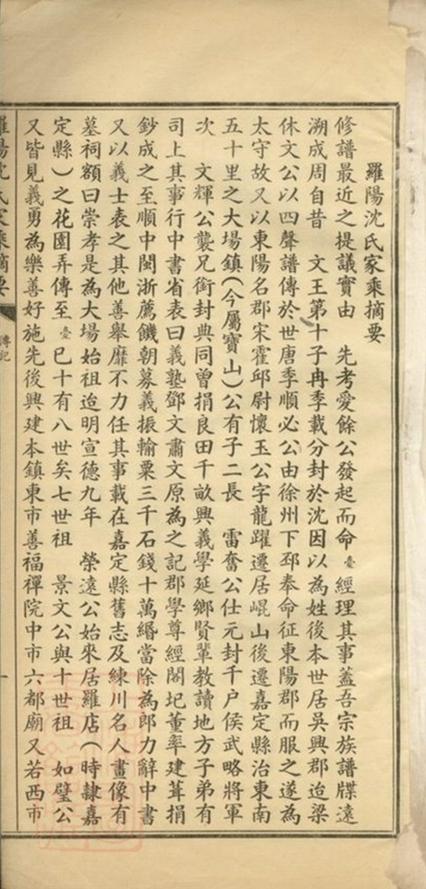 羅陽沈氏家乘摘要
修譜最近之提議實由　先考愛餘公發起而命臺經理其事蓋吾宗族譜牒遠
溯成周自昔　文王第十子冉季載分封於沈因以為姓後本世居吳興郡迨梁
休文公以四聲譜傳於世唐季順必公由徐州下邳奉命征東陽郡而服之遂為
太守故又以東陽名郡宋霍邱尉懷玉公字龍躍遷居崐山後遷嘉定縣治東南
五十里之大場鎮(今屬寶山)公有子二長　雷奮公仕元封千户侯武略將軍
次　文輝公襲兄銜封典同曾捐良田千畝興義學延鄉賢輩教讀地方子弟有
司上其事行中書省表曰義塾鄧文肅文原為之記郡學尊經閣圮董率建葺捐
鈔成之至順中閩浙薦饑朝募義振輸粟三千石錢十萬緡當除為郎力辭中書
又以義士表之其他善舉靡不力任其事載在嘉定縣舊志及練川名人畫像有
墓祠額曰崇孝是為大場始祖迨明宣德九年　榮遠公始來居羅店(時隸嘉
定縣)之花園弄傳至臺已十有八世矣七世祖　景文公與十世祖　如璧公
又皆見義勇為樂善好施先後興建本鎮東市善福禪院中市六都廟又若西市
羅陽沈氏家乘摘要
傳記
一